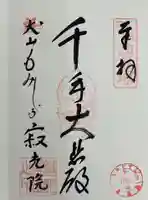 奉拝
千手大悲殿
犬山もみじ寂光院